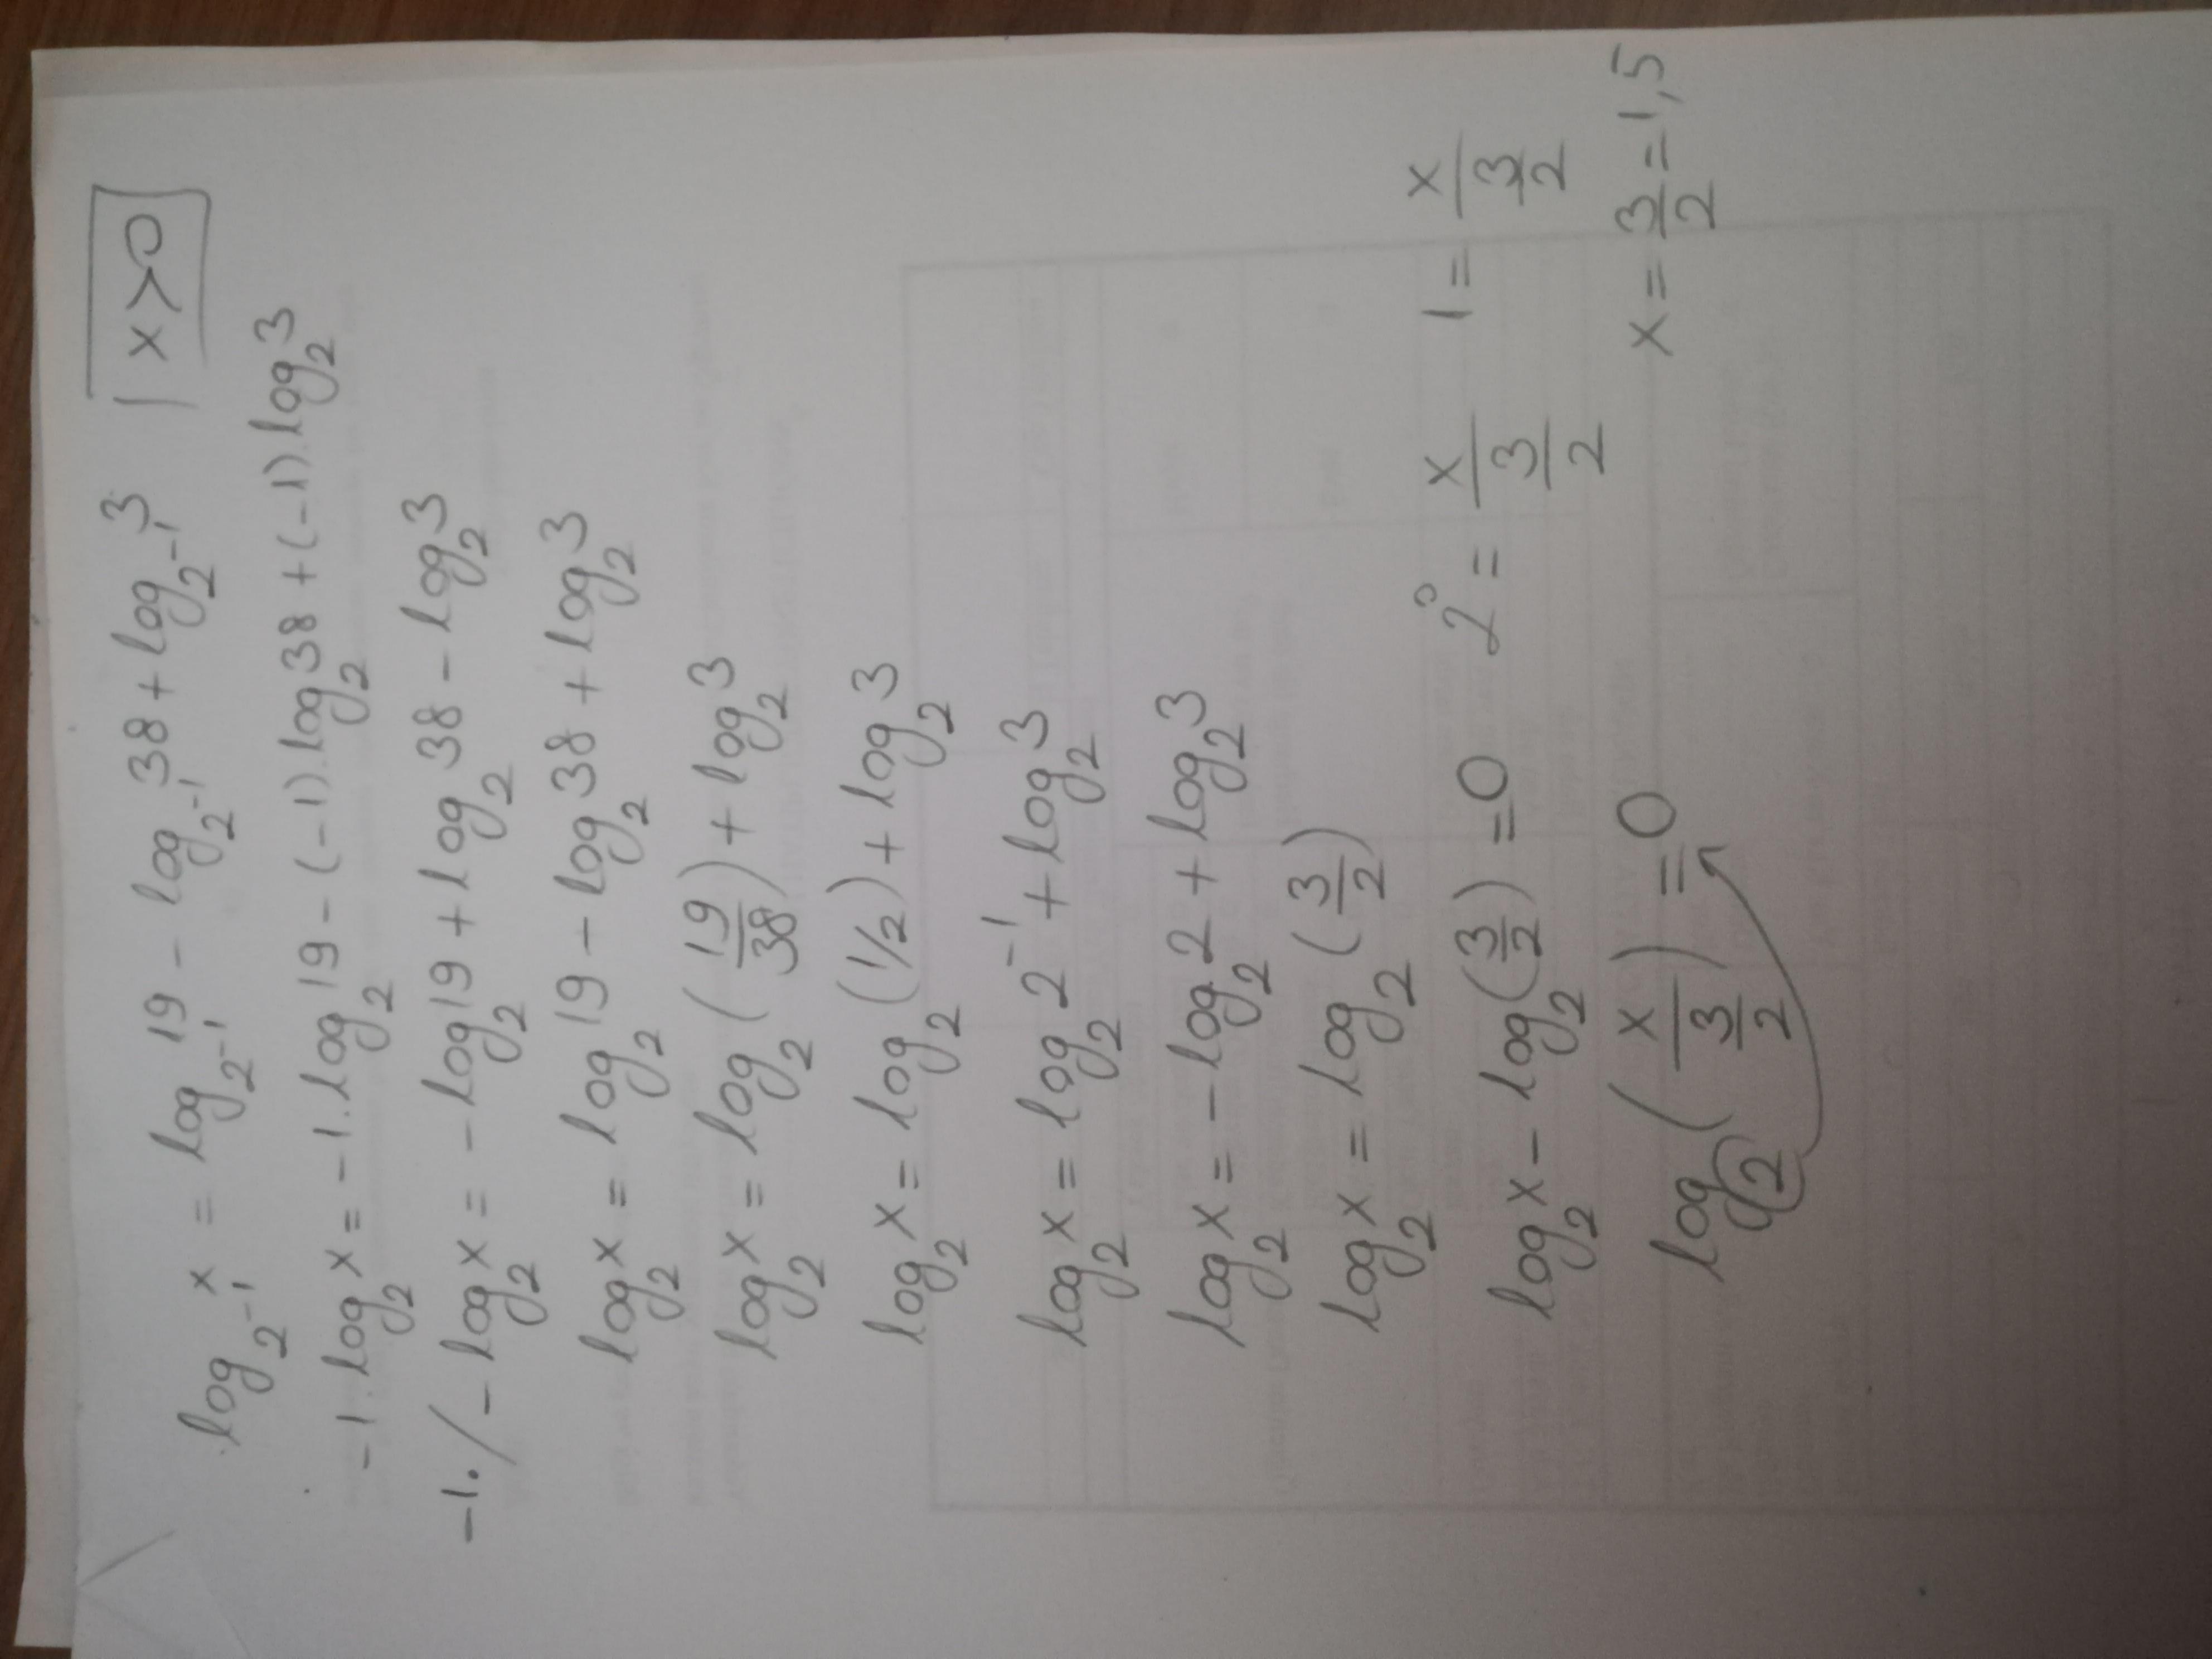 log₂₋₁ x = log₂₋₁ 19 - log₂₋₁ 38 + log₂₋₁ 3 | x>0
-1.log₂ x = -1.log₂ 19 - (-1).log₂ 38 + (-1).log₂ 3
-1. / - log₂ x = - log₂ 19 + log₂ 38 - log₂ 3
log₂ x = log₂ 19 - log₂ 38 + log₂ 3
log₂ x = log₂ (19/38) + log₂ 3
log₂ x = log₂ (1/2) + log₂ 3
log₂ x = log₂ 2⁻¹ + log₂ 3
log₂ x = - log₂ 2 + log₂ 3
log₂ x = log₂ (3/2)
log₂ x - log₂ (3/2) = 0 2⁰ = x/(3/2) 1 = x/(3/2)
log₂ (x/(3/2)) = 0 x = 3/2 = 1,5